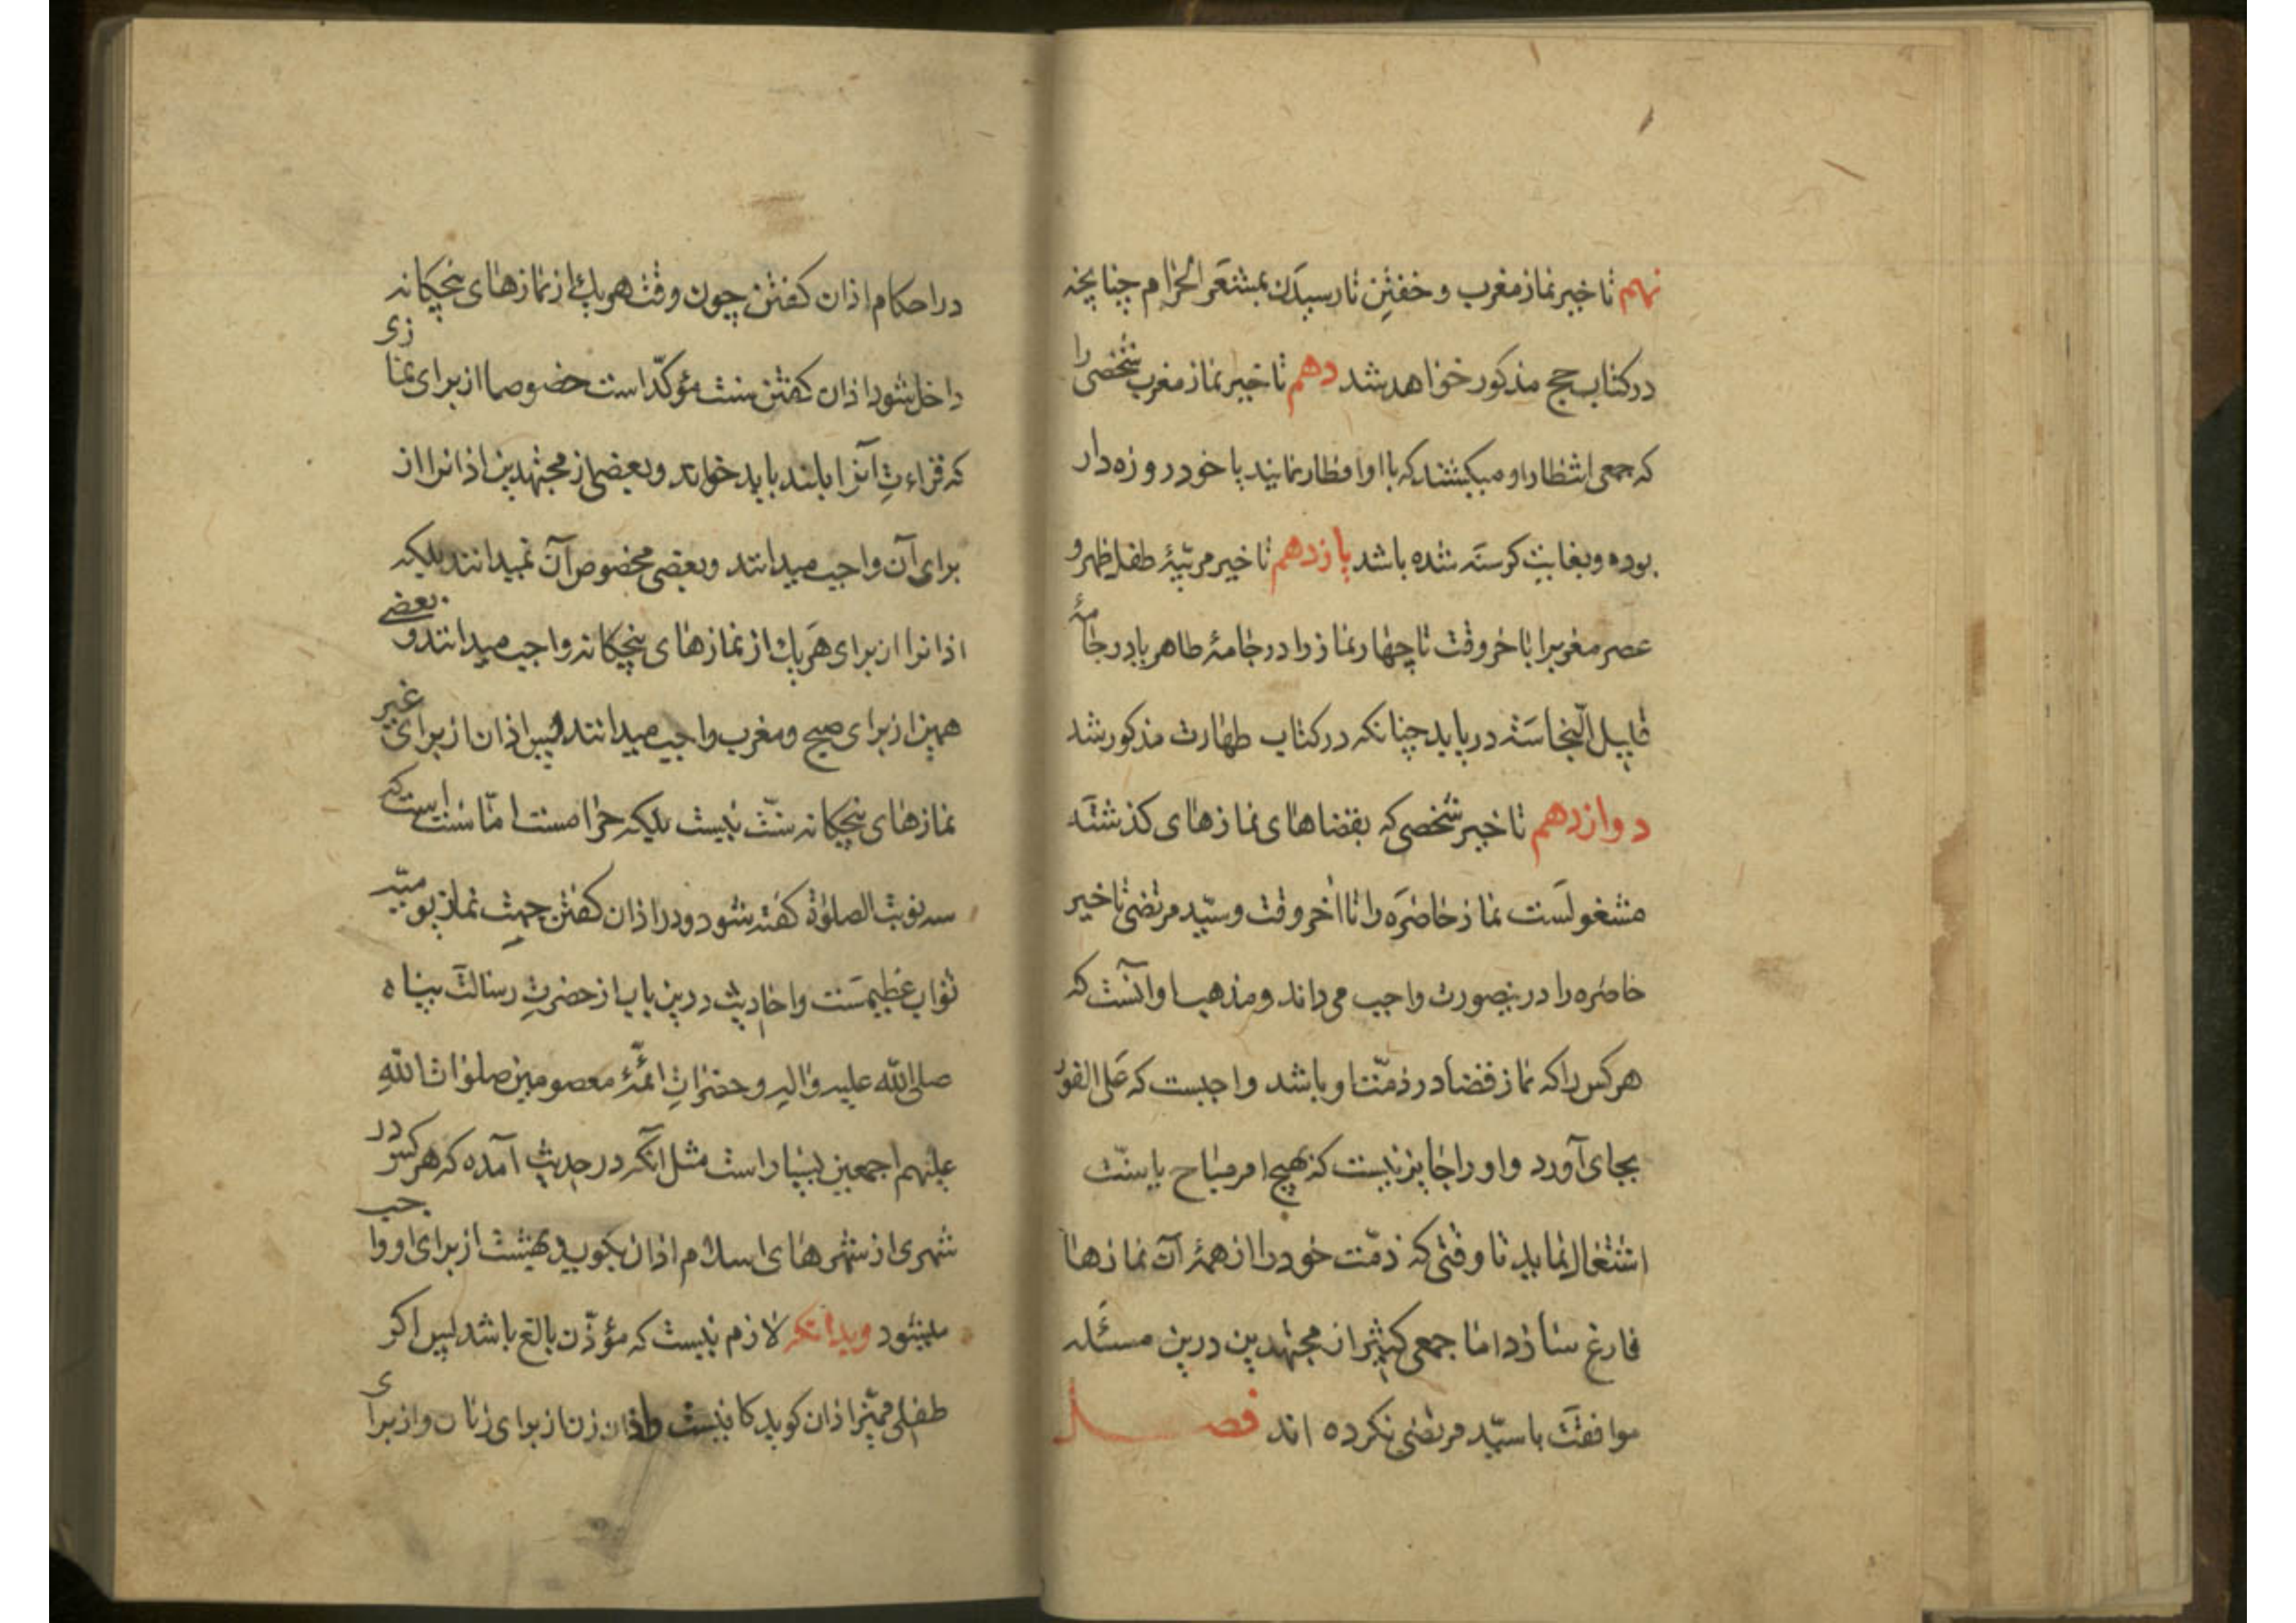 نهم تاخیر نماز مغرب و خفتن تا رسیدن بمشعر الحرام چنانچه
در کتاب حج مذکور خواهد شد دهم تاخیر نماز مغرب شخصی را
که جمعی انتظار او میکشند که با او افطار نمایند یا خود روزه دار
بوده و بغایت کرسنه شده باشد یازدهم تاخیر مربّیهٔ طفل ظهر و
عصر مغرب را تا خر وقت تا چهار نماز را در جامهٔ طاهر یا در جامهٔ
قلیل النّجاسته دریابد چنانکه در کتاب طهارت مذکور شد
دوازدهم تاخیر شخصی که بقضاهای نمازهای کذشته
مشغولست نماز حاضره را تا اخر وقت و سیّد مرتضی تاخیر
حاضره را درینصورت واجب می داند و مذهب او آنست که
هر کس را که نماز قضا در ذمّت او باشد واجبست که علی الفور
بجای آورد و او را جایز نیست که بهیچ امر مباح یا سنّت
اشتغال نماید تا وقتی که ذمّت خود را از همهٔ آن نمازها
فارغ سازد اما جمعی کثیر از مجتهدین درین مسئله
موافقت با سیّد مرتضی نکرده اند فصل
در احکام اذان کفتن چون وقت هر یک از نمازهای پنجکانه
داخل شود اذان کفتن سنت مؤکدّ است خصوصا از برای نمازی
که قراءت آنرا بلند باید خواند و بعضی از مجتهدین اذانرا از
برای آن واجب میدانند و بعضی مخصوص آن نمیدانند بلیکه
اذانرا از برای هر یک از نمازهای پنجکانه واجب میدانند و بعضی
همین از برای صبح و مغرب واجب میدانند پس اذان از برای غیر
نمازهای پنجکانه سنّت نیست بلیکه حرامست امّا سنّت است که
سه نوبت الصلوة کفته شود و در اذان کفتن جهت نماز یومیّه
ثواب عظیمست و احادیث درین باب از حضرت رسالت پناه
صلی اللّه علیه و اله و حضرات ائمّهٔ معصومین صلوات اللّه
علیهم اجمعین بسیار است مثل انکه در حدیث آمده که هر کس در
شهری از شهرهای اسلام اذان بکوید بهشت از برای او واجب
میشود وبدانکه لازم نیست که مؤذّن بالغ باشد پس اکر
طفلی ممیّز اذان کوید کافیست و اذان زن از برای زنان و از برای